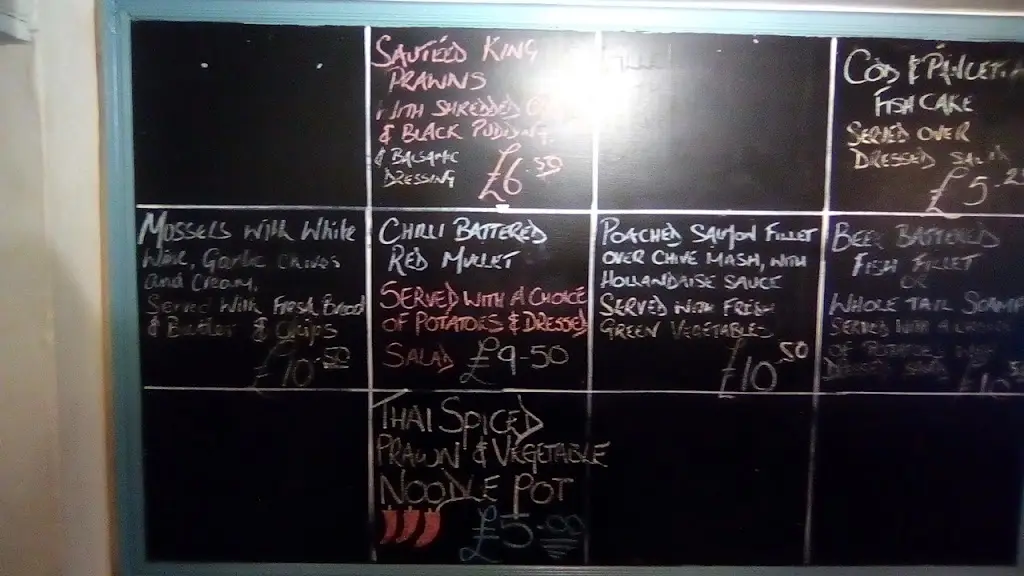 SAUTÉED KING
PRAWNS
WITH SHREDDED
& BLACK PUDDING
& BALSAMIC
DRESSING £6.50
COD &
FISH CAKE
SERVED OVER
DRESSED SALAD
MUSSELS WITH WHITE
WINE, GARLIC CHIVES
AND CREAM,
SERVED WITH FRESH BREAD
& BUTTER & CHIPS
£10.50
CHILLI BATTERED
RED MULLET
SERVED WITH A CHOICE
OF POTATOES & DRESSED
SALAD £9-50
POACHED SALMON FILLET
OVER CHIVE MASH, WITH
HOLLANDAISE SAUCE
SERVED WITH FRESH
GREEN VEGETABLES
£10.50
BEER BATTERED
FISH FILLET
OR
WHOLE TAIL SCAMPI
SERVED WITH A
OF POTATOES
DRESSED SALAD
THAI SPICED
PRAWN & VEGETABLE
NOODLE POT
£5.00